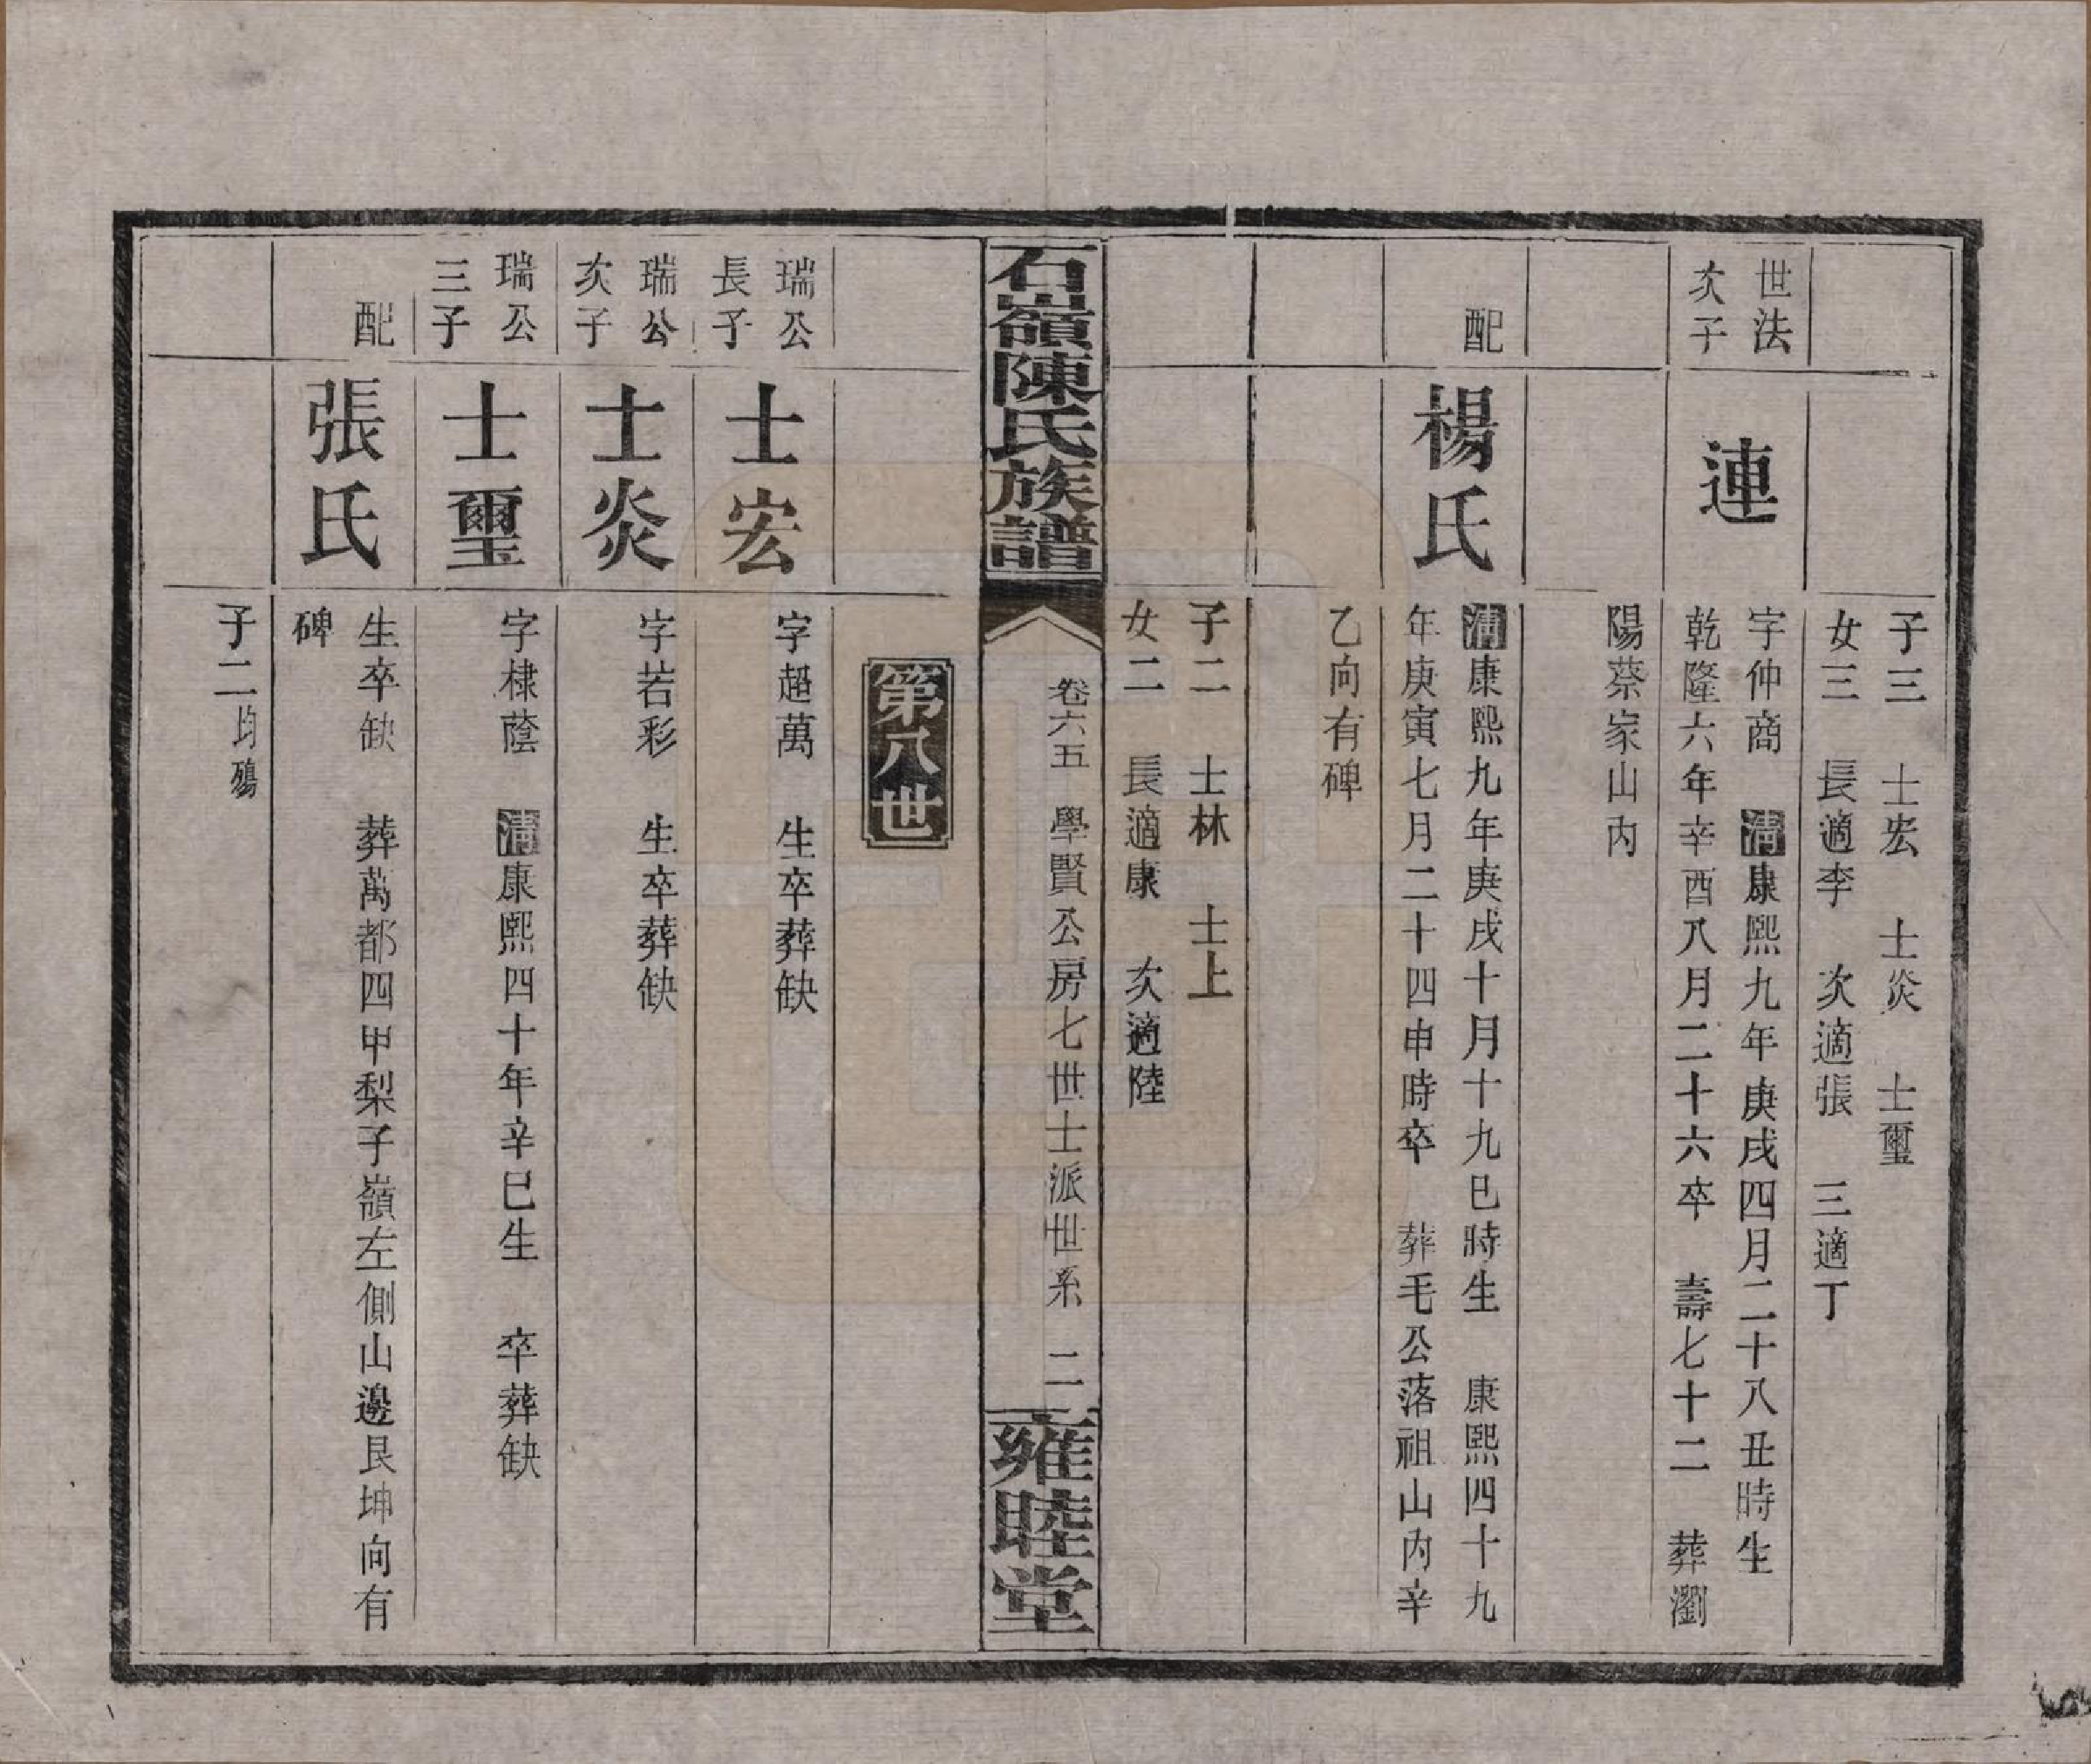 子三　士宏　士炎　士璽
女三　長適李　次適張　三適丁
世法
次子
連
字仲商　清康熙九年庚戌四月二十八丑時生
乾隆六年辛酉八月二十六卒　壽七十二　葬瀏
陽蔡家山內
配
楊氏
清康熙九年庚戌十月十九巳時生　康熙四十九
年庚寅七月二十四申時卒　葬毛公落祖山內辛
乙向有碑
子二　士林　士上
女二　長適康　次適陸
石嶺陳氏族譜
卷六五　學賢公房七世士派世系　二
雍睦堂
第八世
瑞公
長子
士宏
字超萬　生卒葬缺
瑞公
次子
士炎
字若彩　生卒葬缺
瑞公
三子
士璽
字棣蔭　清康熙四十年辛巳生　卒葬缺
配
張氏
生卒缺　葬萬都四甲梨子嶺左側山邊艮坤向有
碑
子二均殤